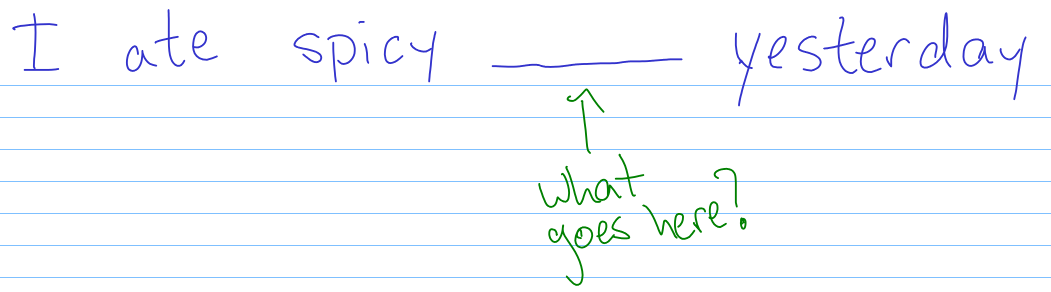 I ate spicy ______ yesterday
what
goes here?